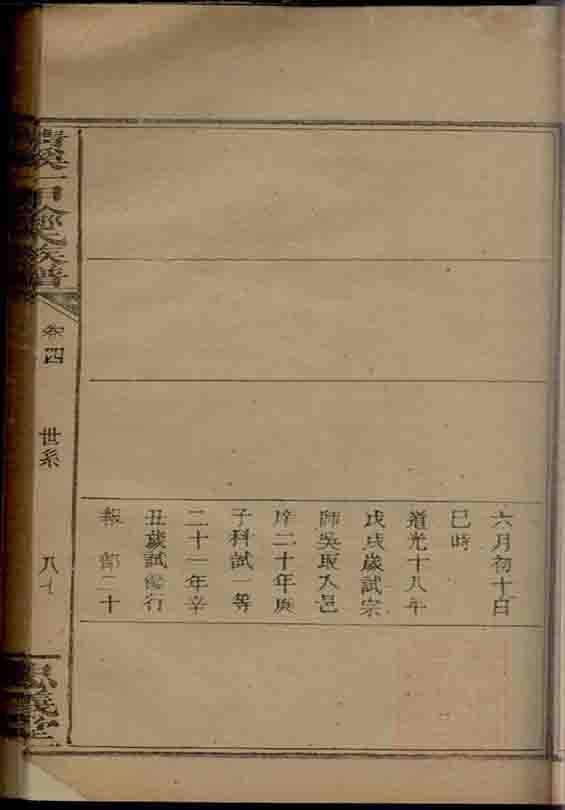 六月初十日
巳時
道光十八年
戊戌歲試宗
師吳取入邑
庠二十年庚
子科試一等
二十一年辛
丑歲試優行
報部二十
徐氏族譜
卷四
世系